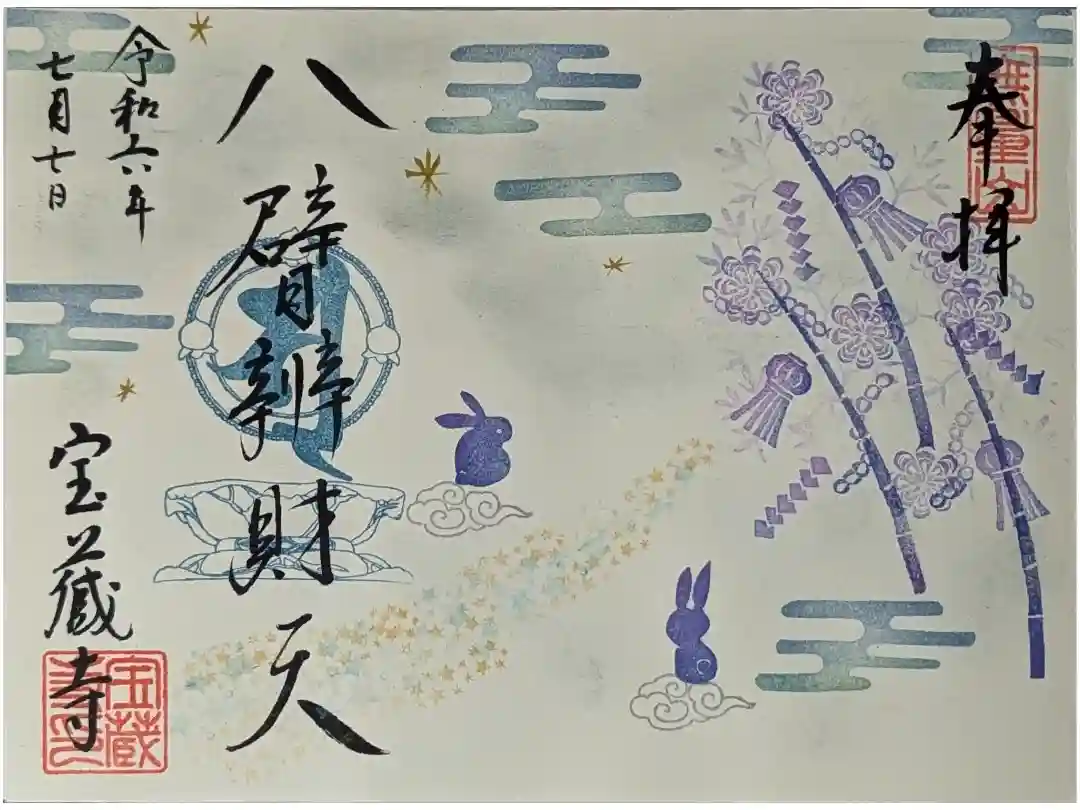 奉拝
無量山
八臂辨財天
令和六年
七月七日
宝蔵寺
宝蔵寺印